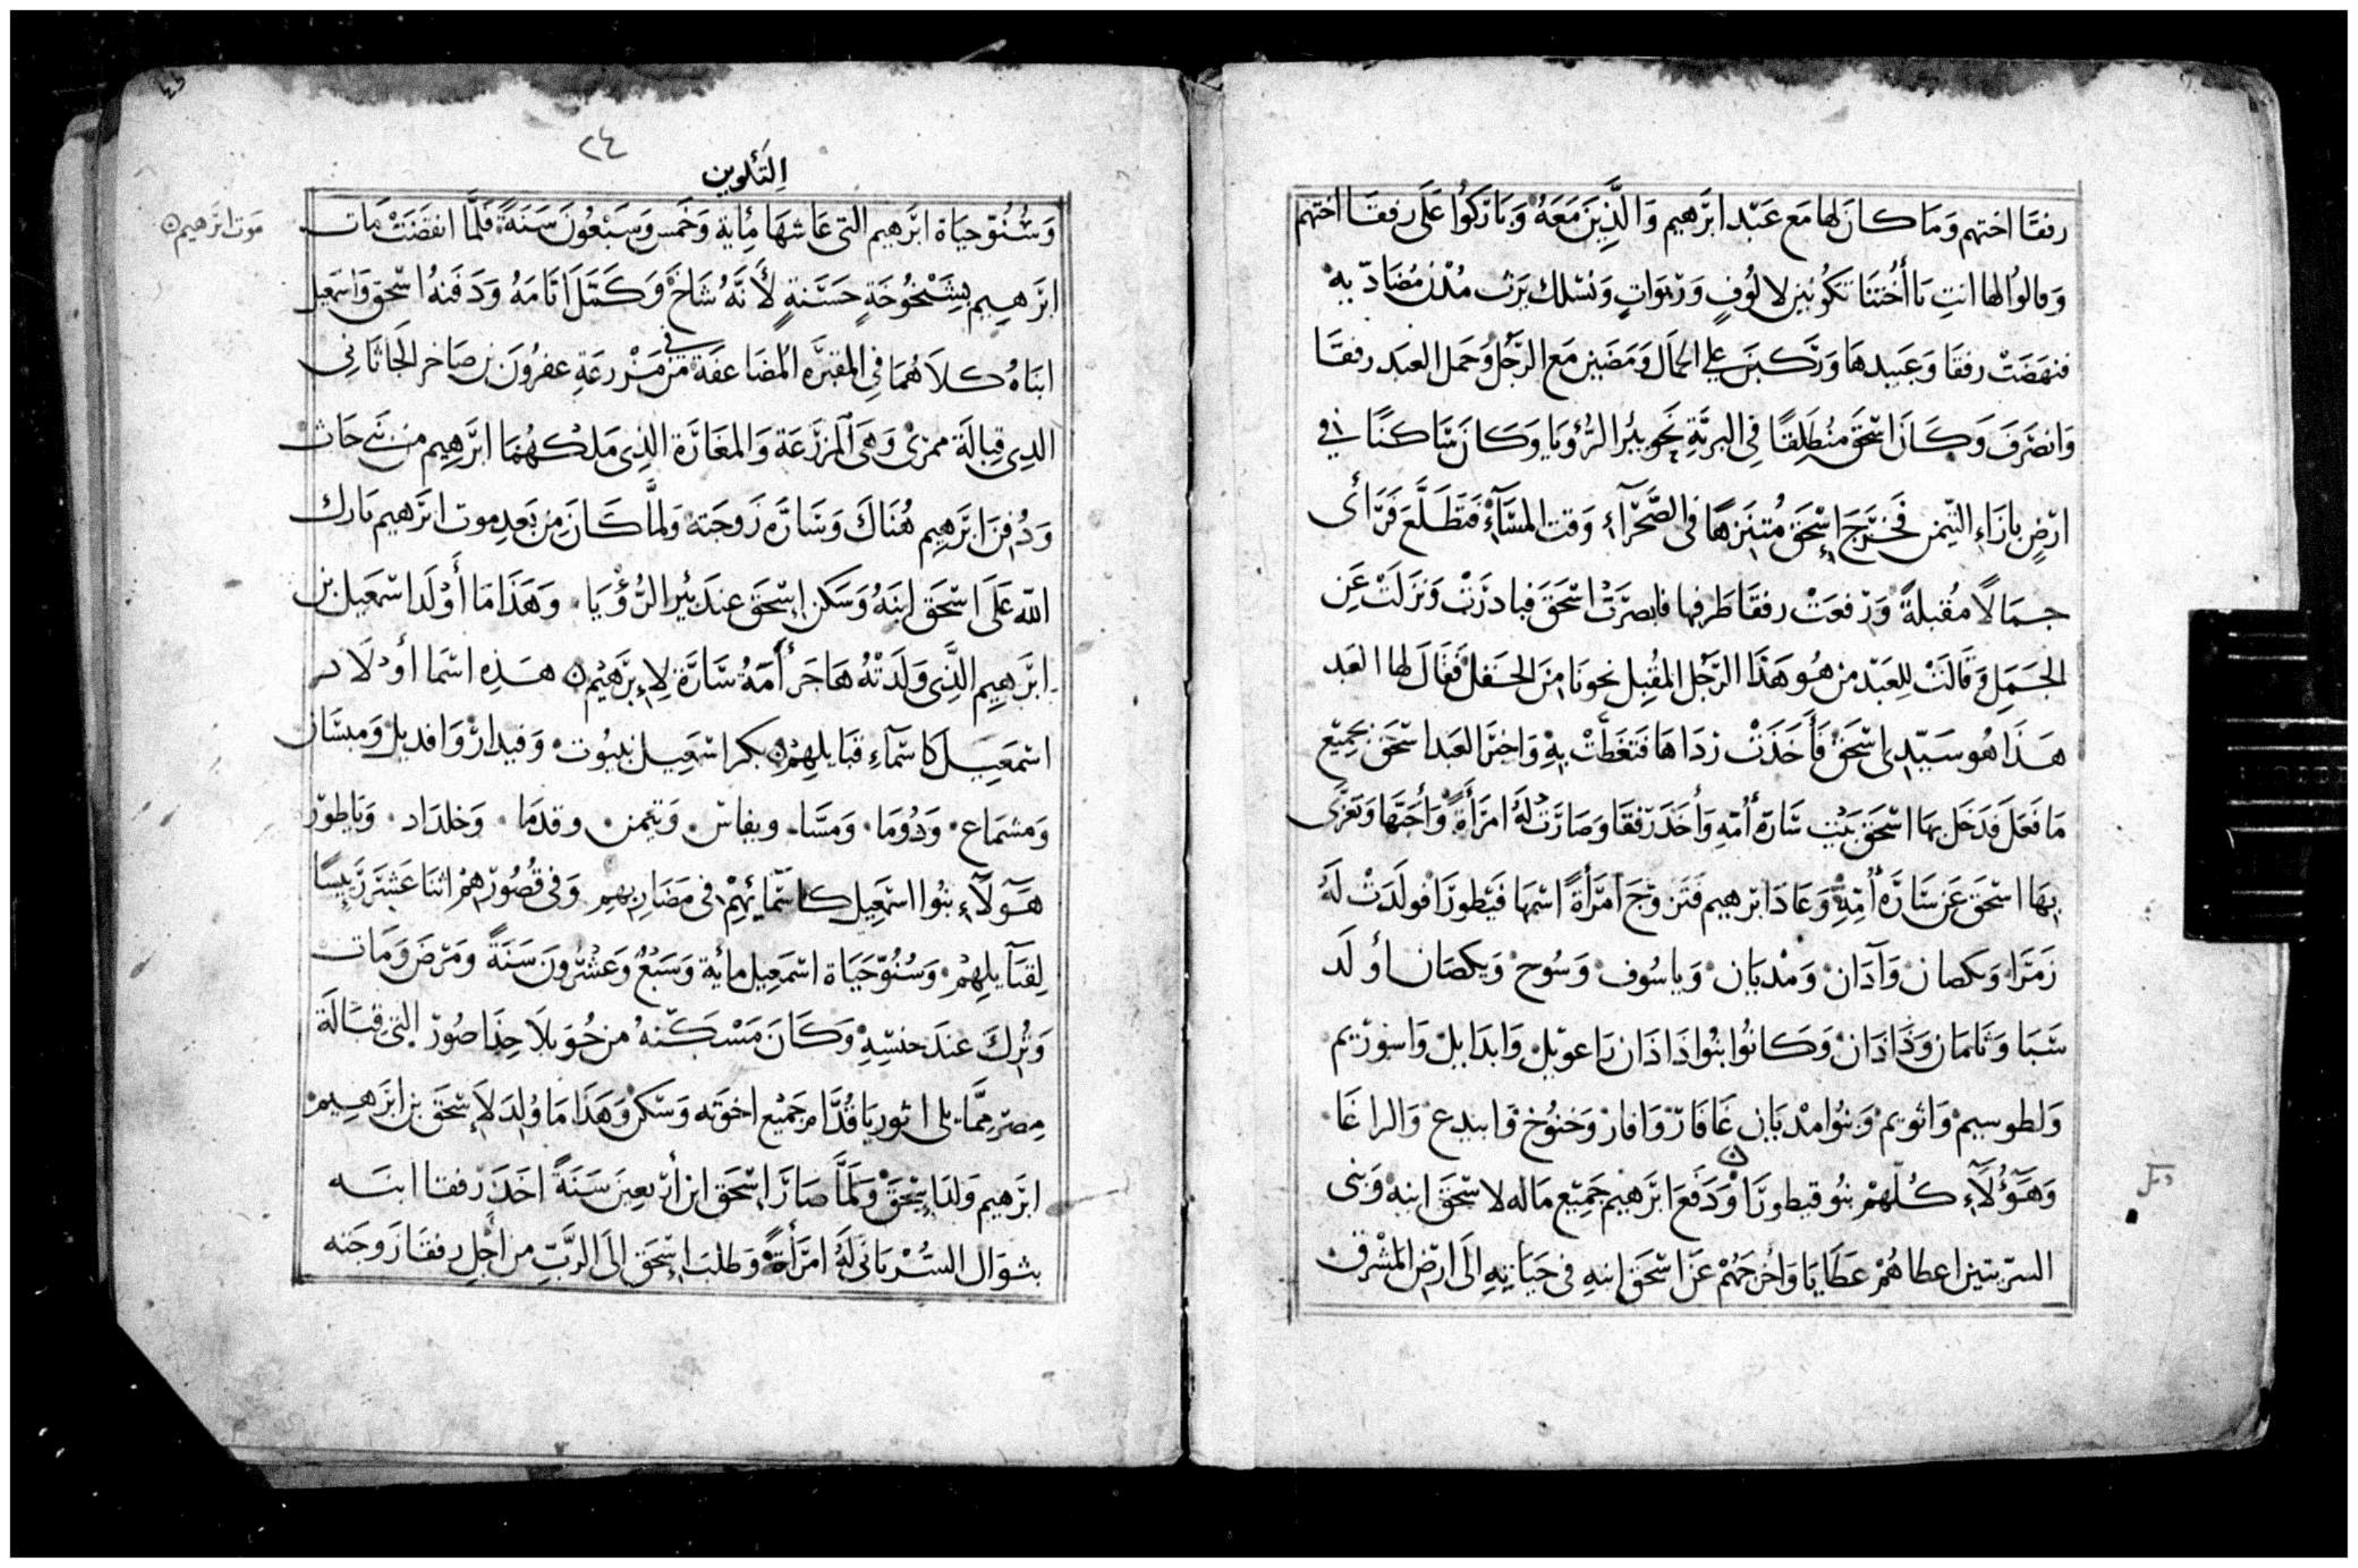 رفقَا اختهم وَمَا كانَ لها مَع عَبْد ابرَهيم وَالذِينَ مَعَهُ وَبَارَكوُا عَلَى رفقَا اختهم
وَقالوُا لها انتِ يَا أُختنَا تكوُنين لالوُفٍ وَربوَاتٍ وَنسْلك يَرث مُدُن مُضَادّيهِ
فنهَضَتْ رفقَا وَعَبيدهَا وَرَكبنَ عَلي الجمَال وَمَضَين مَع الرَّجُل وَحَمل العبَد رفقَا
وَانصَرَفَ وَكَانَ اسْحَقَ منُطَلِقًا فِى البريَّةِ نَحَو بيُر الرُّؤيَا وَكانَ سَاكنًا في
ارْضٍ بازَاءِ التيمَن فَخَرَجَ إسْحَقَ مُتنَزهًا فى الصَّحْرَآءِ وَقت المسَآءِ فَتَطَلَّعَ فَرَأى
جمَالًا مُقبلةً وَرَفعَتْ رفقَا طَرفها فابصَرَتْ اسْحَقَ فبادرَتْ وَنزَلَتْ عَن
الجَمَلِ وَقَالَتْ لِلعَبْد مَن هُو هَذَا الرّجُل المقُبِل نحونَا مِنَ الحَقلْ فَقَالَ لها العَبد
هَذَا هُو سَيّدِى اسْحَق فَأَخَذَتْ ردَاهَا فَتغَطَتْ بِهِ وَاخبَرَ العَبد اسْحَقَ بجَميْع
مَا فَعَلَ فَدَخَل بهَا اسْحَق بَيْت سَارَة أُمّهِ وَأخَذَ رَفقَا وَصَارَتْ لَهُ امرَأةً وَأحَبَّهَا وَتعَزَّى
بِهَا اسْحَقَ عَن سَارَة أُمِّهِ وَعَادَ ابرَهيم فَتَزوَّجَ امرَأةً اسْمهَا قَيْطورَا فولَدَتْ لَهُ
زمَرَا وَيكصان وَآدَان وَمَدْيَان وَياسُوف وَسُوح وَيكصَان أولَد
سَبَا وَثَامَان وَدَادَان وَكَانوُا بنُوا دَادَان رَاعوَيل وَابدَايل وَاسوْريم
وَلطوسِيم وَاثويم وَبنُوا مدْيَان غَافَار وَافار وَخنُوخ وَابيدع وَالراغَا
وَهَؤُلَآءِ كُلّهمْ بنُو قيطورَا وَدَفَعَ ابرَهيْم جَميْع مَاله لاسْحَقَ ابنِهِ وَبَنى
السرّيتين اعطاهُمْ عَطَايَا وَاخْرَجَهُمْ عَن اسْحَقَ ابنِهِ في حَيَاتِهِ الَى ارْض المَشْرق
٢٤
التَكوين
وَسُنُوّ حيَاة ابرَهيم التى عَاشهَا مِايةِ وَخَمس وَسَبْعُونَ سَنَةً فَلَمَّا انقضَتْ مَات
ابرَهيِم بشَيْخُوخَةٍ حَسَنةٍ لأَنَّهُ شَاخَ وَكَمَلَ ايَامَهُ وَدَفَنهُ اسْحَق وَاسْمَعيل
موت ابرَهيم
ابنَاهُ كلَاهُمَا فِى المقبَرَه المُضَاعفَة في مَزْرعَةِ عفرُونَ بن صَاخر الحَاثَانِى
الذِى قِبالَة ممرَى وَهىَ المَزرَعَة وَالمغَارَة الذِى مَلكهُمَا ابرَهِيم مِن بَنى حَاث
وَدُفنَ ابرَهيِم هُنَاكَ وَسَارَه زَوجَته وَلمَّا كَانَ مِن بَعدِ موت ابرَهيم بَارك
اللّه عَلَى اسْحَق ابنَهُ وَسَكن إسْحَق عندَ بيُر الرُّؤيَا وَهَذَا مَا أَوْلَد اسْمَعيل بن
ابرَهيِم الذِّى وَلَدَتْهُ هَاجَر أَمَةُ سَارَة لإبرَهيْم هَذِه اسْمَا أوْلَاد
اسْمَعيل كاسْمَآءِ قبَايلهِمْ بكر اسْمَعِيل نبيوُت وَقيدار وَافديل وَمبسَان
وَمشمَاع وَدُومَا وَمَسَّا وبفاس وَتيمن وقدمَا وَخلدَاد وَياطور
هَؤلَآءِ بنُوا اسْمَعِيل كاسْمَائِهِمْ فى مَضَاربهِم وَفي قُصُورهمْ اثنَا عَشَرَ رَيسًا
لِقبَآيلِهِمْ وَسُنُوّ حَيَاة اسْمَعِيل مايُة وَسَبْعُ وَعَشرُونَ سَنَةً وَمَرضَ وَمَات
وَتُركَ عندَ جنسِهِ وَكَانَ مَسْكَنهُ من حُوَيلَا حِذَا صُورْ التى قبَالَة
مِصرْ ممَّا يلى اثوريَا قُدَّام جَميْع اخوَته وَسَكن وَهَذَا مَا وُلِدَ لإسْحَق بن ابرَهِيمْ
ابرَهيم وَلدَ إسْحَقَ وَلمَّا صَارَ إسْحَق ابن أرْبعينَ سَنَةً اخَذَ رَفقا ابنَه
بثوَال السُرْيَانى لَهُ امرَأةً وَطلبَ إسْحَق الَى الرَّبّ من أجْل رفقَا زَوجَته